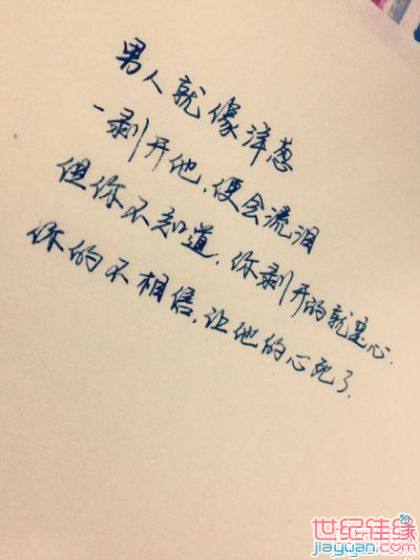 男人就像洋葱
一剥开他，便会流泪
但你不知道，你剥开的就是心.
你的不相信，让他的心死了.
世纪佳缘
jiayuan.com